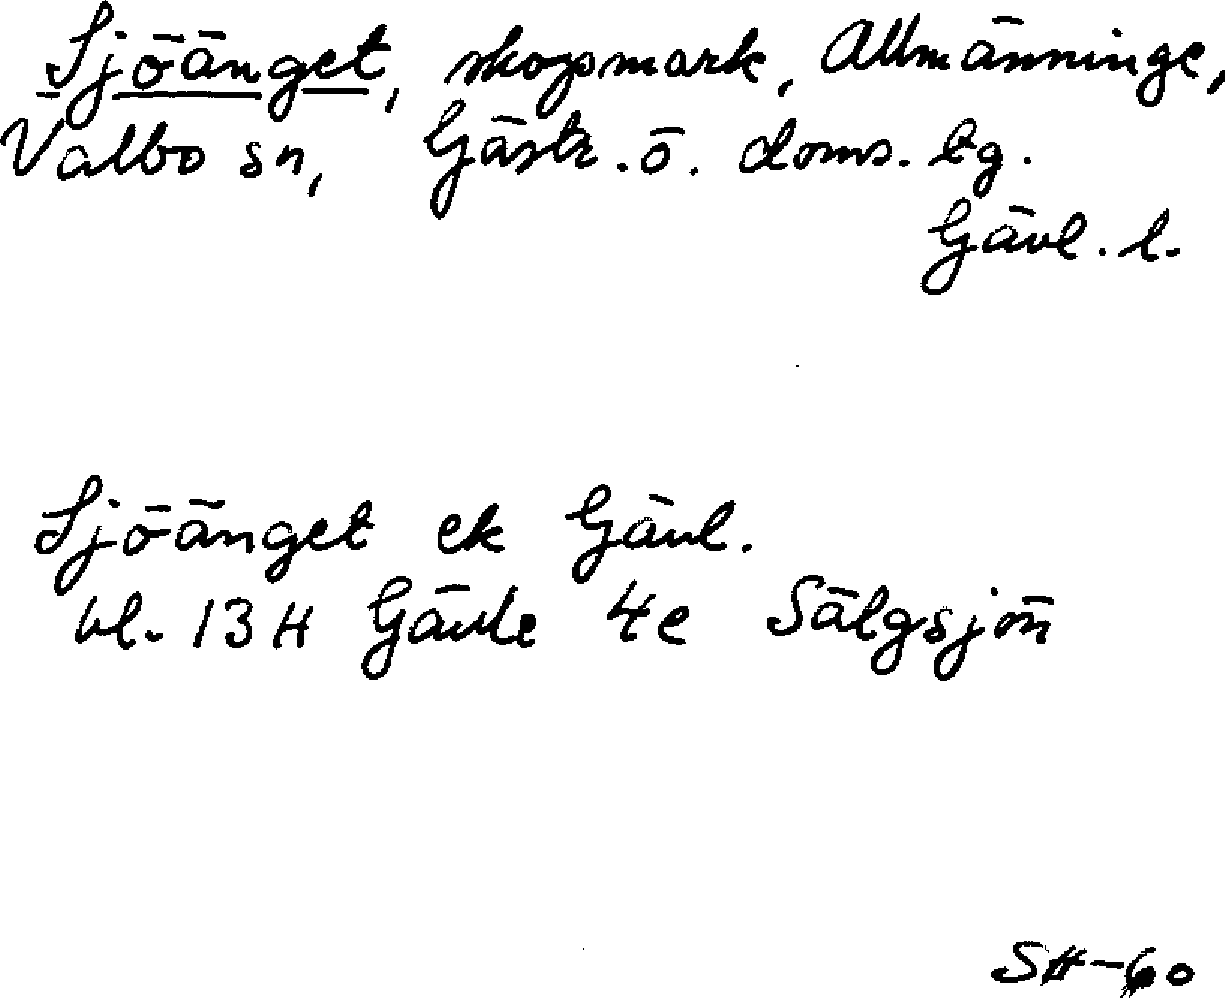 Sjöänget, skogsmark, Allmänninge,
Valbo sn, Gästr. ö. doms. tg.
Gävl. l.
Sjöänget ek Gävl.
bl. 13 H Gävle 4e Sälgsjön
SH-60